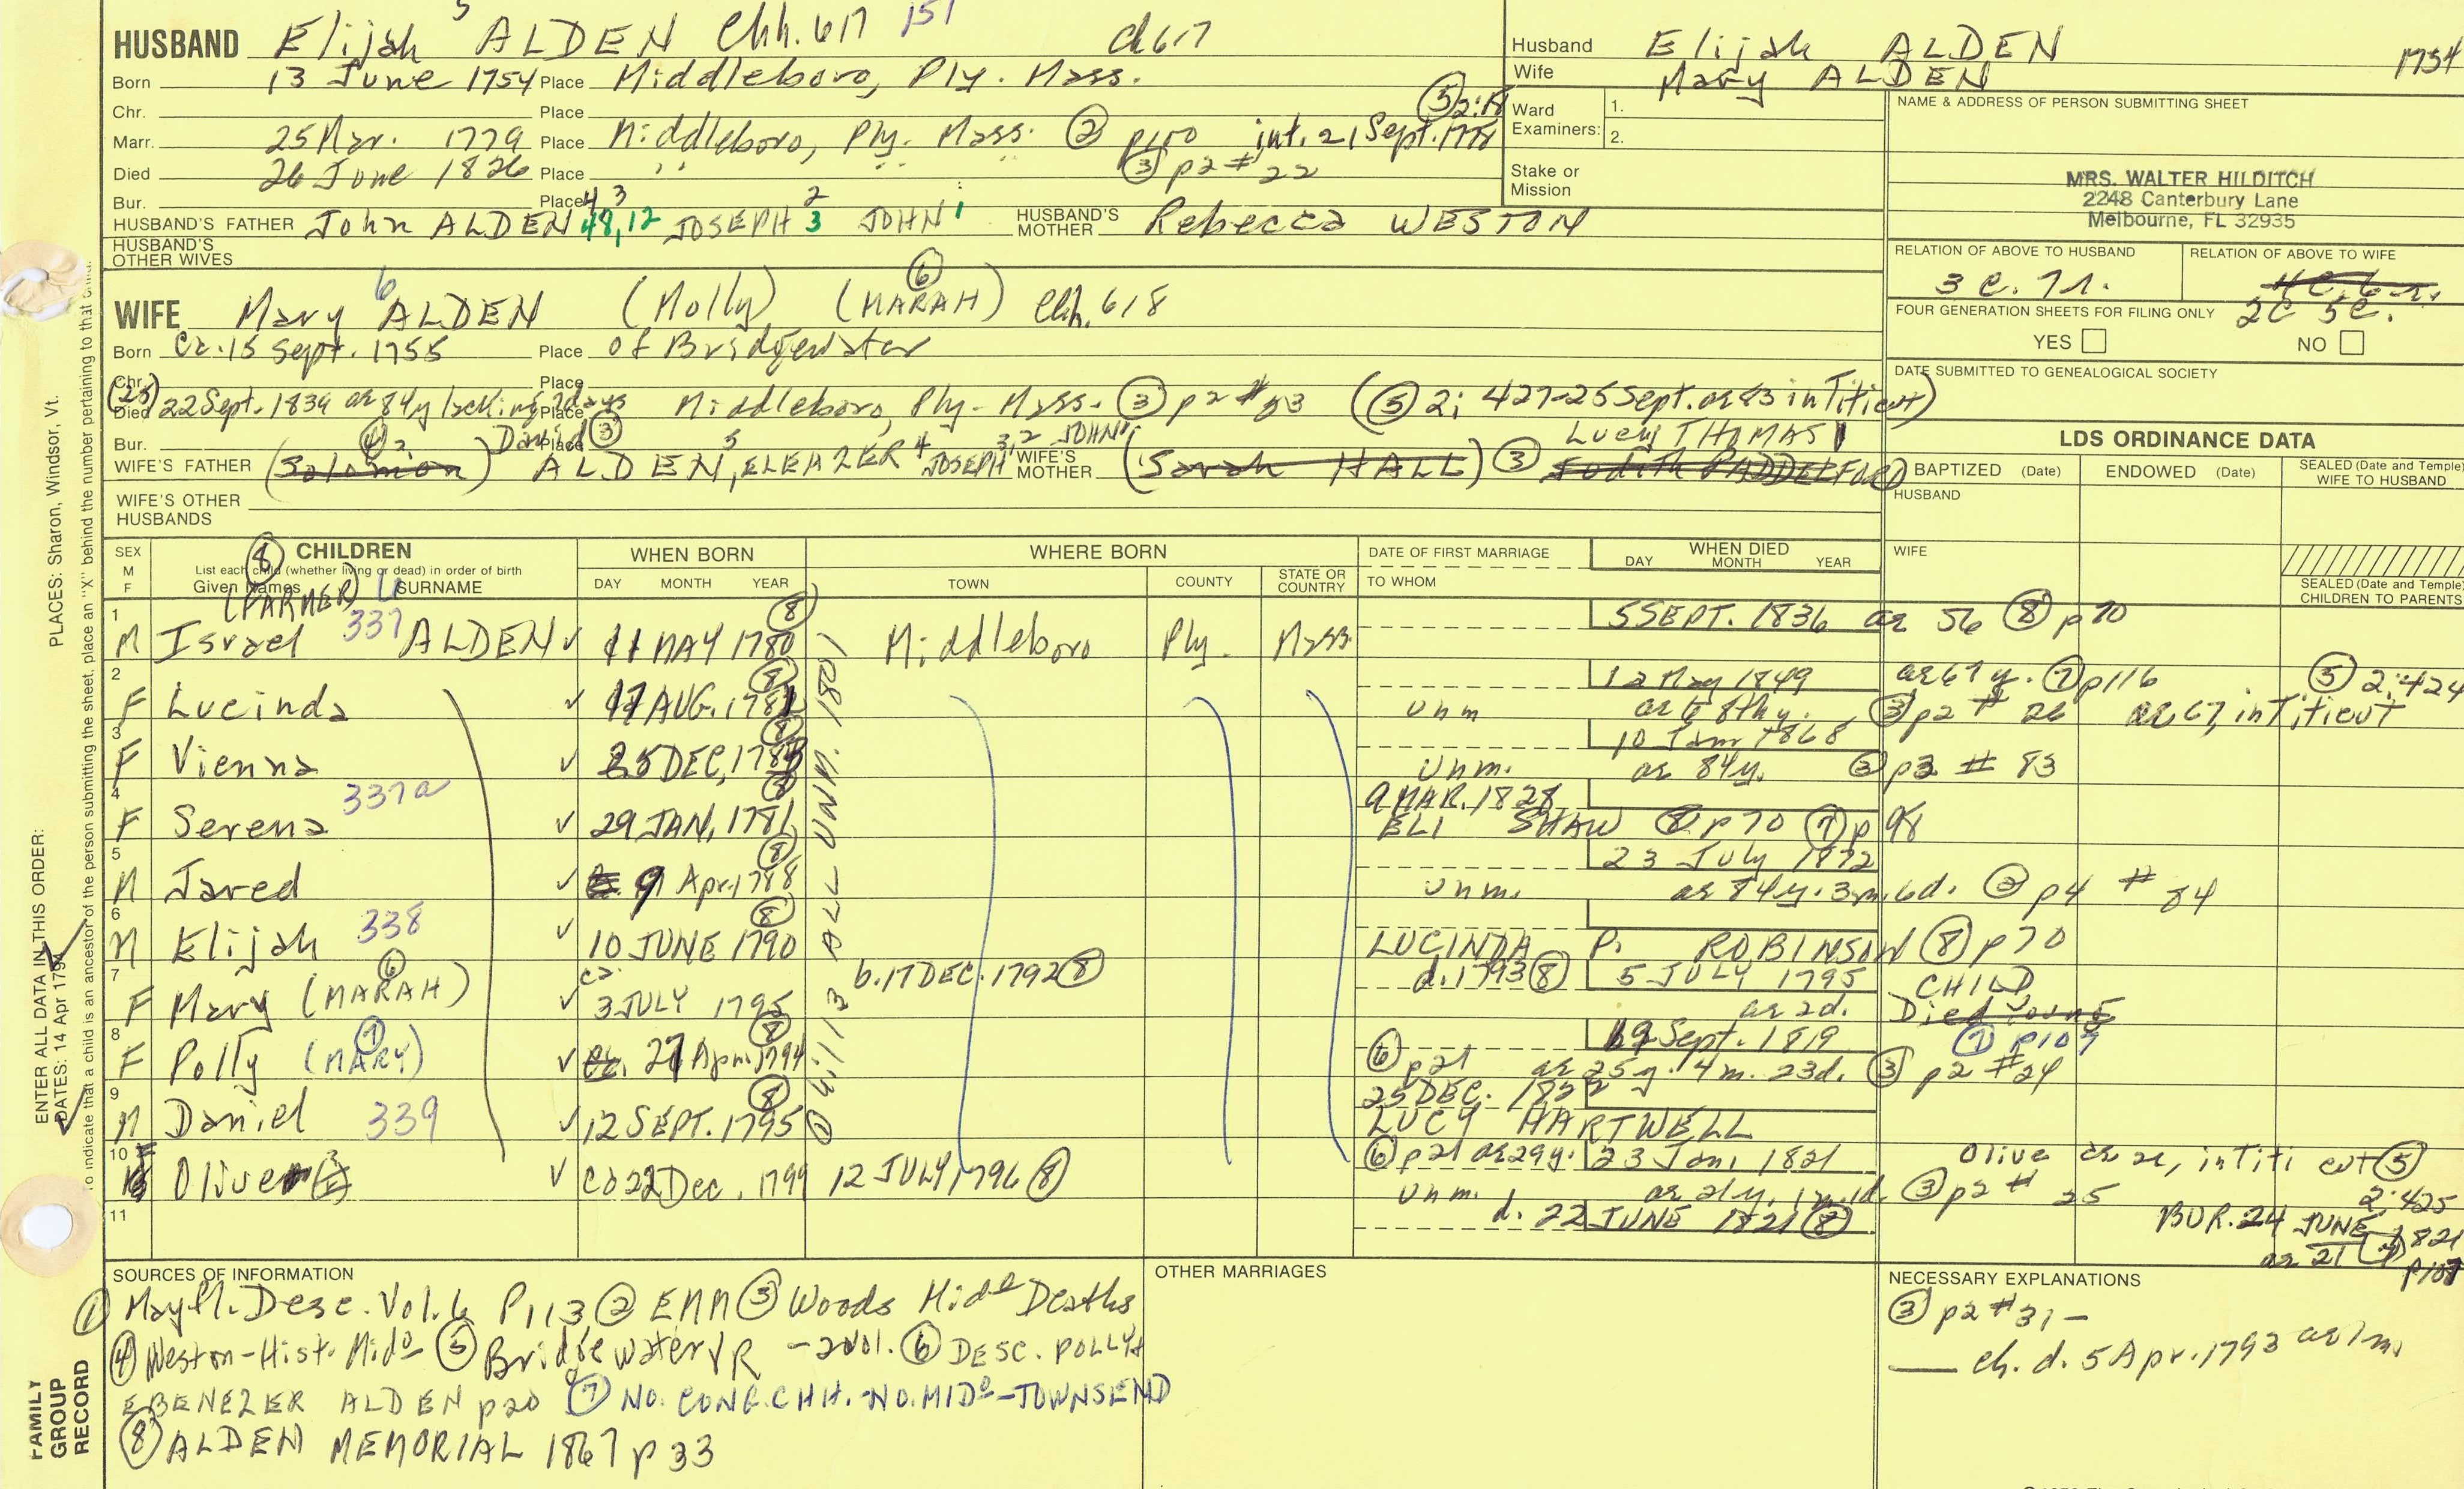 HUSBAND Elijah 5 ALDEN Chh. 617 151 Ch 617
Born 13 June 1754 Place Middleboro, Ply. Mass.
Chr. Place
Marr. 25 Mar. 1779 Place Middleboro, Ply. Mass. ② p100 int. 21 Sept. 1778 ⑤ 2:18
Died 26 June 1826 Place " " " ③ p2 #22
Bur. Place
HUSBAND'S FATHER John ALDEN 4 3 48,12 JOSEPH 2 3 JOHN 1 HUSBAND'S MOTHER Rebecca WESTON
HUSBAND'S OTHER WIVES
Husband Elijah ALDEN 1754
Wife Mary ALDEN
Ward Examiners: 1.
2.
Stake or Mission
NAME & ADDRESS OF PERSON SUBMITTING SHEET
MRS. WALTER HILDITCH
2248 Canterbury Lane
Melbourne, FL 32935
RELATION OF ABOVE TO HUSBAND RELATION OF ABOVE TO WIFE
3 C. 7 r. 4C. 6 r.
2C 5C.
FOUR GENERATION SHEETS FOR FILING ONLY
YES NO
DATE SUBMITTED TO GENEALOGICAL SOCIETY
WIFE Mary 6 ALDEN (Molly) (MARAH) ⑥ Chh. 618
Born Ca. 15 Sept. 1755 Place of Bridgewater
Chr. Place
(25) Died 22 Sept. 1839 ae 84y lacking 7 days Place Middleboro, Ply. Mass. ③ p2 #53 (⑤ 2; 427-25 Sept. ae 83 in Titicut)
Bur. Place
WIFE'S FATHER (Solomon) ④ 2 David ③ ALDEN, 5 ELEAZER 4 JOSEPH 3,2 JOHN 1 WIFE'S MOTHER (Sarah HALL) ③ Judith PADDELFORD Lucy THOMAS
WIFE'S OTHER HUSBANDS
LDS ORDINANCE DATA
BAPTIZED (Date) ENDOWED (Date) SEALED (Date and Temple) WIFE TO HUSBAND
HUSBAND
WIFE
SEALED (Date and Temple) CHILDREN TO PARENTS
SEX M F
CHILDREN ⑧
List each child (whether living or dead) in order of birth
Given Names SURNAME
WHEN BORN DAY MONTH YEAR
WHERE BORN TOWN COUNTY STATE OR COUNTRY
DATE OF FIRST MARRIAGE TO WHOM
WHEN DIED DAY MONTH YEAR
1 M Israel (FARMER) 337 ALDEN ✓ 11 MAY 1780 ⑧ Middleboro Ply. Mass. 5 SEPT. 1836 ae 56 ⑧ p70
2 F Lucinda ✓ 17 AUG. 1781 ⑧ unm 12 May 1849 ae 67 y. ⑦ p116 ⑤ 2:424
ae 68th y. ③ p2 # 26 ae 67, in Titicut
3 F Vienna ✓ 25 DEC, 1783 ⑧ unm. 10 Jan 1868 ae 84y. ③ p3 # 83
4 F Serena 337a ✓ 29 JAN, 1786 ⑧ 9 MAR. 1828
ELI SHAW ⑧ p70 ⑦ p98
5 M Jared ✓ 9 Apr. 1788 ⑧ unm. 23 July 1872
ae 84y. 3m. 6d. ③ p4 # 84
6 M Elijah 338 ✓ 10 JUNE 1790 ⑧ LUCINDA P. ROBINSON ⑧ p70
7 F Mary (MARAH) ⑥ ✓ ca. 3 JULY 1795 b. 17 DEC. 1792 ⑧ d. 1793 ⑧ 5 JULY 1795 ae 2d. CHILD Died young
8 F Polly (MARY) ⑦ ✓ 27 Apr. 1794 ⑧ ⑥ p21 19 Sept. 1819 ⑦ p107
ae 25 y. 4 m. 23d. ③ p2 #24
9 M Daniel 339 ✓ 12 SEPT. 1795 ⑧ 25 DEC. 1822
LUCY HARTWELL
10 F Olive ✓ Ca 22 Dec. 1799 12 JULY 1796 ⑧ ⑥ p21 ae 29y. 23 Jan. 1821 Olive in Titicut ⑤ 2:425
unm. ae 21y. 1m. 1d. ③ p2 # 25
d. 22 JUNE 1821 ⑧ BUR. 24 JUNE 1821
ae 21 ⑦ p107
11
ALL UNM. 1801
① 6:113
SOURCES OF INFORMATION
① Mayfl. Desc. Vol. 6 P113 ② EMM ③ Woods Mido Deaths
④ Weston-Hist. Mido ⑤ Bridgewater VR - 2 vol. ⑥ DESC. POLLY &
EBENEZER ALDEN p20 ⑦ NO. CONG. CHH. NO. MIDo-TOWNSEND
⑧ ALDEN MEMORIAL 1867 p 33
OTHER MARRIAGES
NECESSARY EXPLANATIONS
③ p2 #31 -
— ch. d. 5 Apr. 1793 ae 1m.
FAMILY GROUP RECORD
ENTER ALL DATA IN THIS ORDER:
DATES: 14 Apr 1794
PLACES: Sharon, Windsor, Vt.
To indicate that a child is an ancestor of the person submitting the sheet, place an "X" behind the number pertaining to that child.